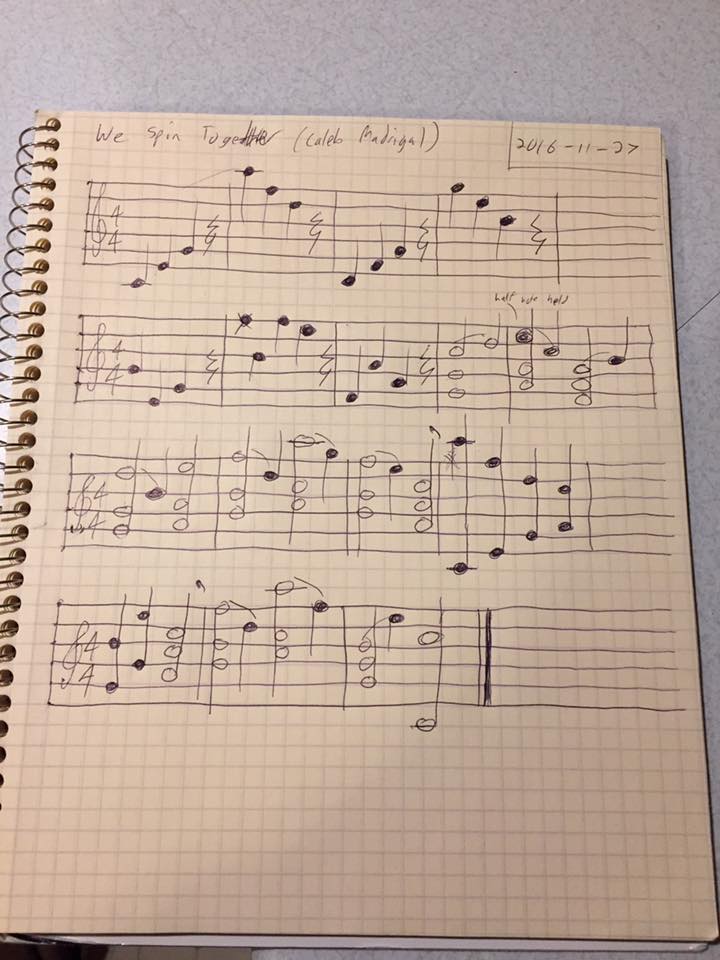 We Spin Together (Caleb Madrigal)
2016-11-27
4
4
half note held
4
4
4
4
4
4